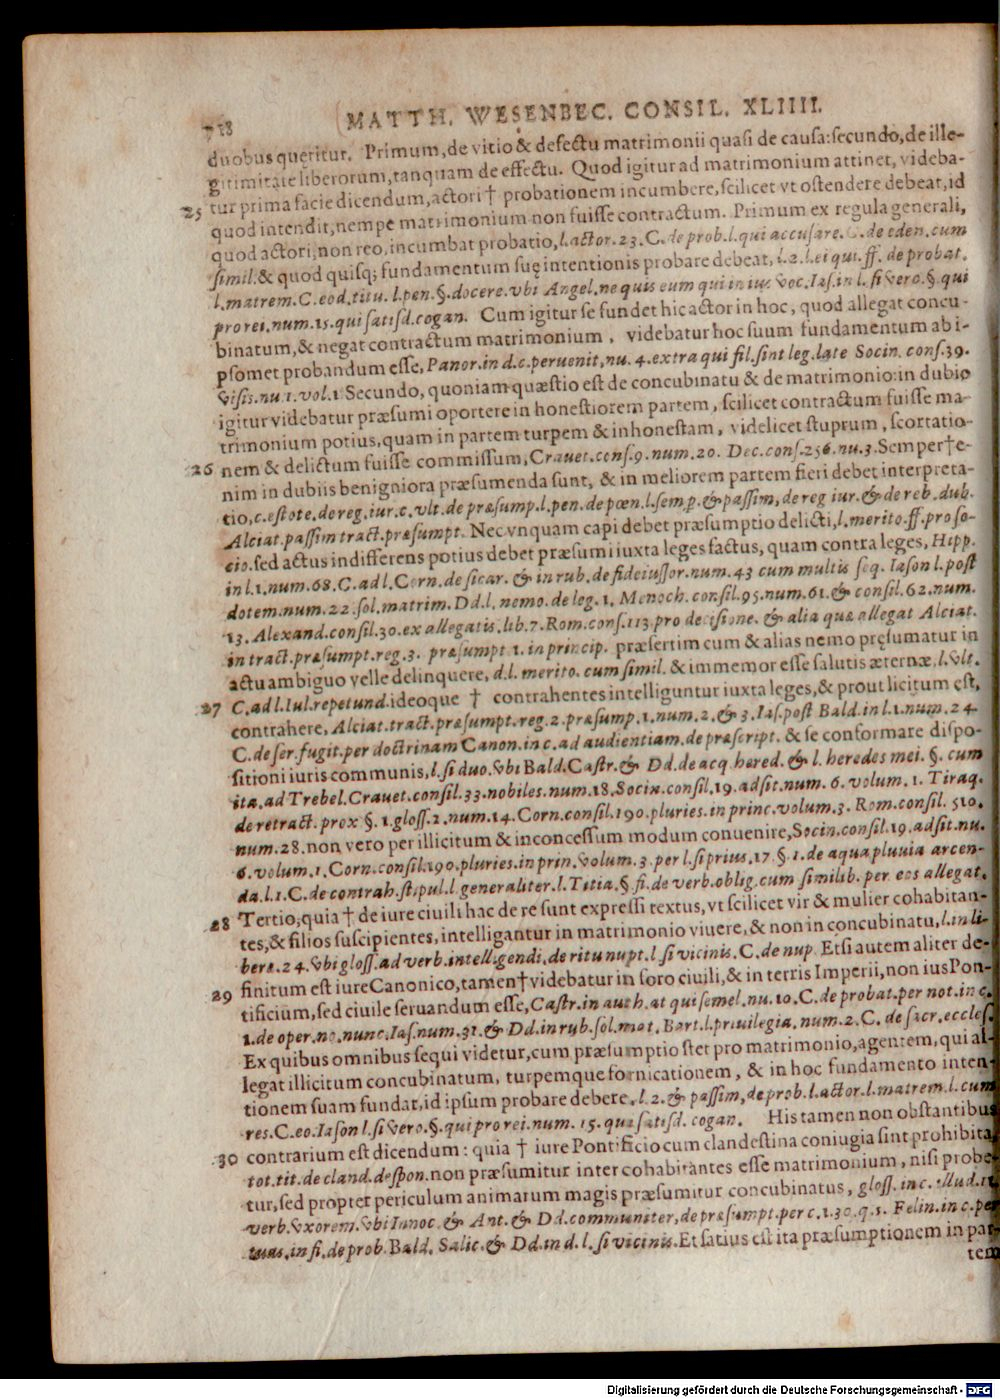 718 MATTH. WESENBEC. CONSIL. XLIIII.
duobus queritur. Primum, de vitio & defectu matrimonii quasi de causa: secundo, de ille-
gitimitate liberorum, tanquam de effectu. Quod igitur ad matrimonium attinet, videba-
25 tur prima facie dicendum, actori † probationem incumbere, scilicet vt ostendere debeat, id
quod intendit, nempe matrimonium non fuisse contractum. Primum ex regula generali,
quod actori, non reo, incumbat probatio, l. actor. 23. C. de prob. l. qui accusare. C. de eden. cum
simil. & quod quisq; fundamentum suę intentionis probare debeat, l. 2. l. ei qui. ff. de probat.
l. matrem. C. eod. titu. l. pen. §. docere. vbi Angel. ne quis eum qui in ius voc. Ias. in l. si vero. §. qui
pro rei. num. 15. qui satisd. cogan. Cum igitur se fundet hic actor in hoc, quod allegat concu-
binatum, & negat contractum matrimonium, videbatur hoc suum fundamentum ab i-
psomet probandum esse, Panor. in d. c. peruenit, nu. 4. extra qui fil. sint leg. late Socin. cons. 39.
visis. nu. 1. vol. 1 Secundo, quoniam quæstio est de concubinatu & de matrimonio: in dubio
igitur videbatur præsumi oportere in honestiorem partem, scilicet contractum fuisse ma-
trimonium potius, quam in partem turpem & inhonestam, videlicet stuprum, scortatio-
26 nem & delictum fuisse commissum, Crauet. cons. 9. num. 20. Dec. cons. 256. nu. 3. Semper † e-
nim in dubiis benigniora præsumenda sunt, & in meliorem partem fieri debet interpreta-
tio, c. estote. de reg. iur. c. vlt. de præsump. l. pen. de pœn. l. semp. & passim, de reg iur. & de reb. dub.
Alciat. passim tract. præsumpt. Nec vnquam capi debet præsumptio delicti, l. merito. ff. pro so-
cio. sed actus indifferens potius debet præsumi iuxta leges factus, quam contra leges, Hipp.
in l. 1. num. 68. C. ad l. Corn. de sicar. & in rub. de fideiussor. num. 43 cum multis seq. Iason l. post
dotem. num. 22. sol. matrim. Dd. l. nemo. de leg. 1. Menoch. consil. 95. num. 61. & consil. 62. num.
13. Alexand. consil. 30. ex allegatis. lib. 7. Rom. cons. 113. pro decisione. & alia quæ allegat Alciat.
in tract. præsumpt. reg. 3. præsumpt 1. in princip. præsertim cum & alias nemo pręsumatur in
actu ambiguo velle delinquere, d. l. merito. cum simil. & immemor esse salutis æternæ, l. vlt.
27 C. ad l. Iul. repetund. ideoque † contrahentes intelliguntur iuxta leges, & prout licitum est,
contrahere, Alciat. tract. præsumpt. reg. 2. præsump. 1. num. 2. & 3. Ias. post Bald. in l. 1. num. 24.
C. de ser. fugit. per doctrinam Canon. in c. ad audientiam. de præscript. & se conformare dispo-
sitioni iuris communis, l. si duo. vbi Bald. Castr. & Dd. de acq. hered. & l. heredes mei. §. cum
ita. ad Trebel. Crauet. consil. 33. nobiles. num. 18. Socin. consil. 19. adsit. num. 6. volum. 1. Tiraq.
de retract. prox §. 1. gloss. 2. num. 14. Corn. consil. 190. pluries. in princ. volum. 3. Rom. consil. 510.
num. 28. non vero per illicitum & inconcessum modum conuenire, Socin. consil. 19. adsit. nu.
6. volum. 1. Corn. consil. 190. pluries. in prin. volum. 3. per l. si prius. 17. §. 1. de aqua pluuia arcen-
da. l. 1. C. de contrah. stipul. l. generaliter. l. Titia. §. fi. de verb. oblig. cum similib. per eos allegat.
28 Tertio, quia † de iure ciuili hac de re sunt expressi textus, vt scilicet vir & mulier cohabitan-
tes, & filios suscipientes, intelligantur in matrimonio viuere, & non in concubinatu, l. in li-
bera. 24. vbi gloss. ad verb. intelligendi, de ritu nupt. l. si vicinis. C. de nup. Etsi autem aliter de-
29 finitum est iure Canonico, tamen † videbatur in foro ciuili, & in terris Imperii, non ius Pon-
tificium, sed ciuile seruandum esse, Castr. in auth. at qui semel. nu. 10. C. de probat. per not. in c.
1. de oper. no. nunc. Ias. num. 31. & Dd. in rub. sol. mat. Bart. l. priuilegia. num. 2. C. de sacr. eccles.
Ex quibus omnibus sequi videtur, cum præsumptio stet pro matrimonio, agentem, qui al-
legat illicitum concubinatum, turpemque fornicationem, & in hoc fundamento inten-
tionem suam fundat, id ipsum probare debere, l. 2. & passim, de prob. l. actor. l. matrem. l. cum
res. C. eo. Iason l. si vero. §. qui pro rei. num. 15. qui satisd. cogan. His tamen non obstantibus
30 contrarium est dicendum: quia † iure Pontificio cum clandestina coniugia sint prohibita,
tot. tit. de cland. despon. non præsumitur inter cohabitantes esse matrimonium, nisi probe-
tur, sed propter periculum animarum magis præsumitur concubinatus, gloss. in c. illud. in
verb. vxorem. vbi Innoc. & Ant. & Dd. communiter, de præsumpt. per c. 1. 30. q. 5. Felin. in c. per
tuas. in fi. de prob. Bald. Salic. & Dd. in d. l. si vicinis. Et satius est ita præsumptionem in par-
tem
Digitalisierung gefördert durch die Deutsche Forschungsgemeinschaft - DFG